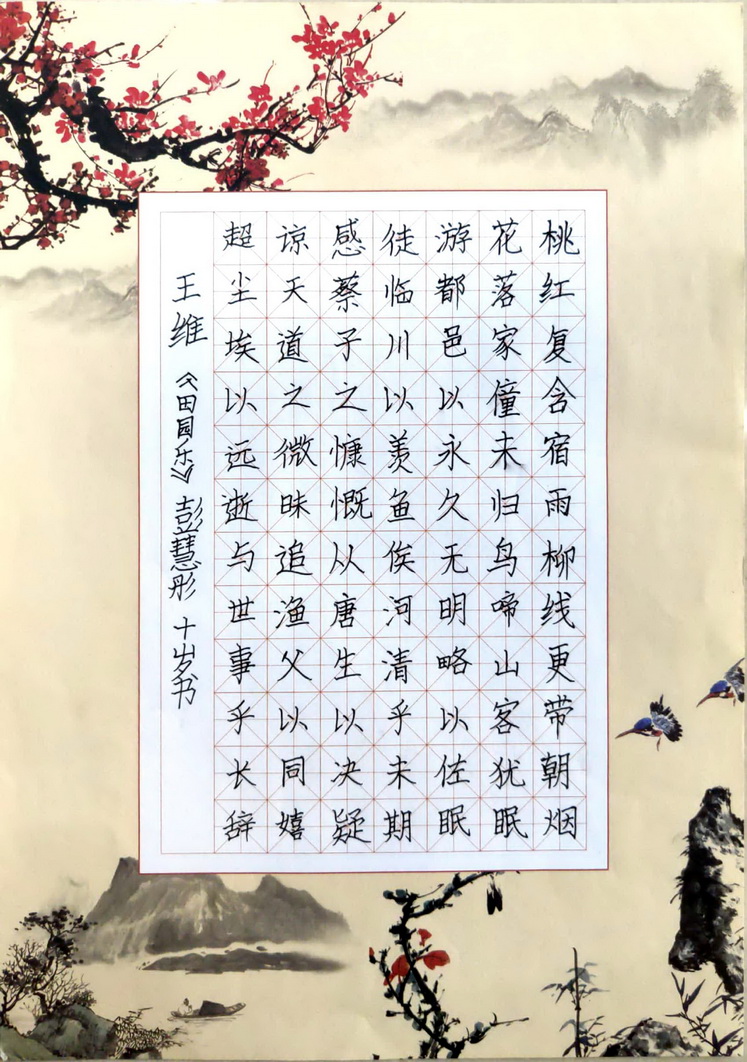 桃红复含宿雨柳线更带朝烟
花落家僮未归鸟啼山客犹眠
游都邑以永久无明略以佐眠
徒临川以羡鱼俟河清乎未期
感蔡子之慷慨从唐生以决疑
谅天道之微昧追渔父以同嬉
超尘埃以远逝与世事乎长辞
王维《田园乐》彭慧彤 十岁书